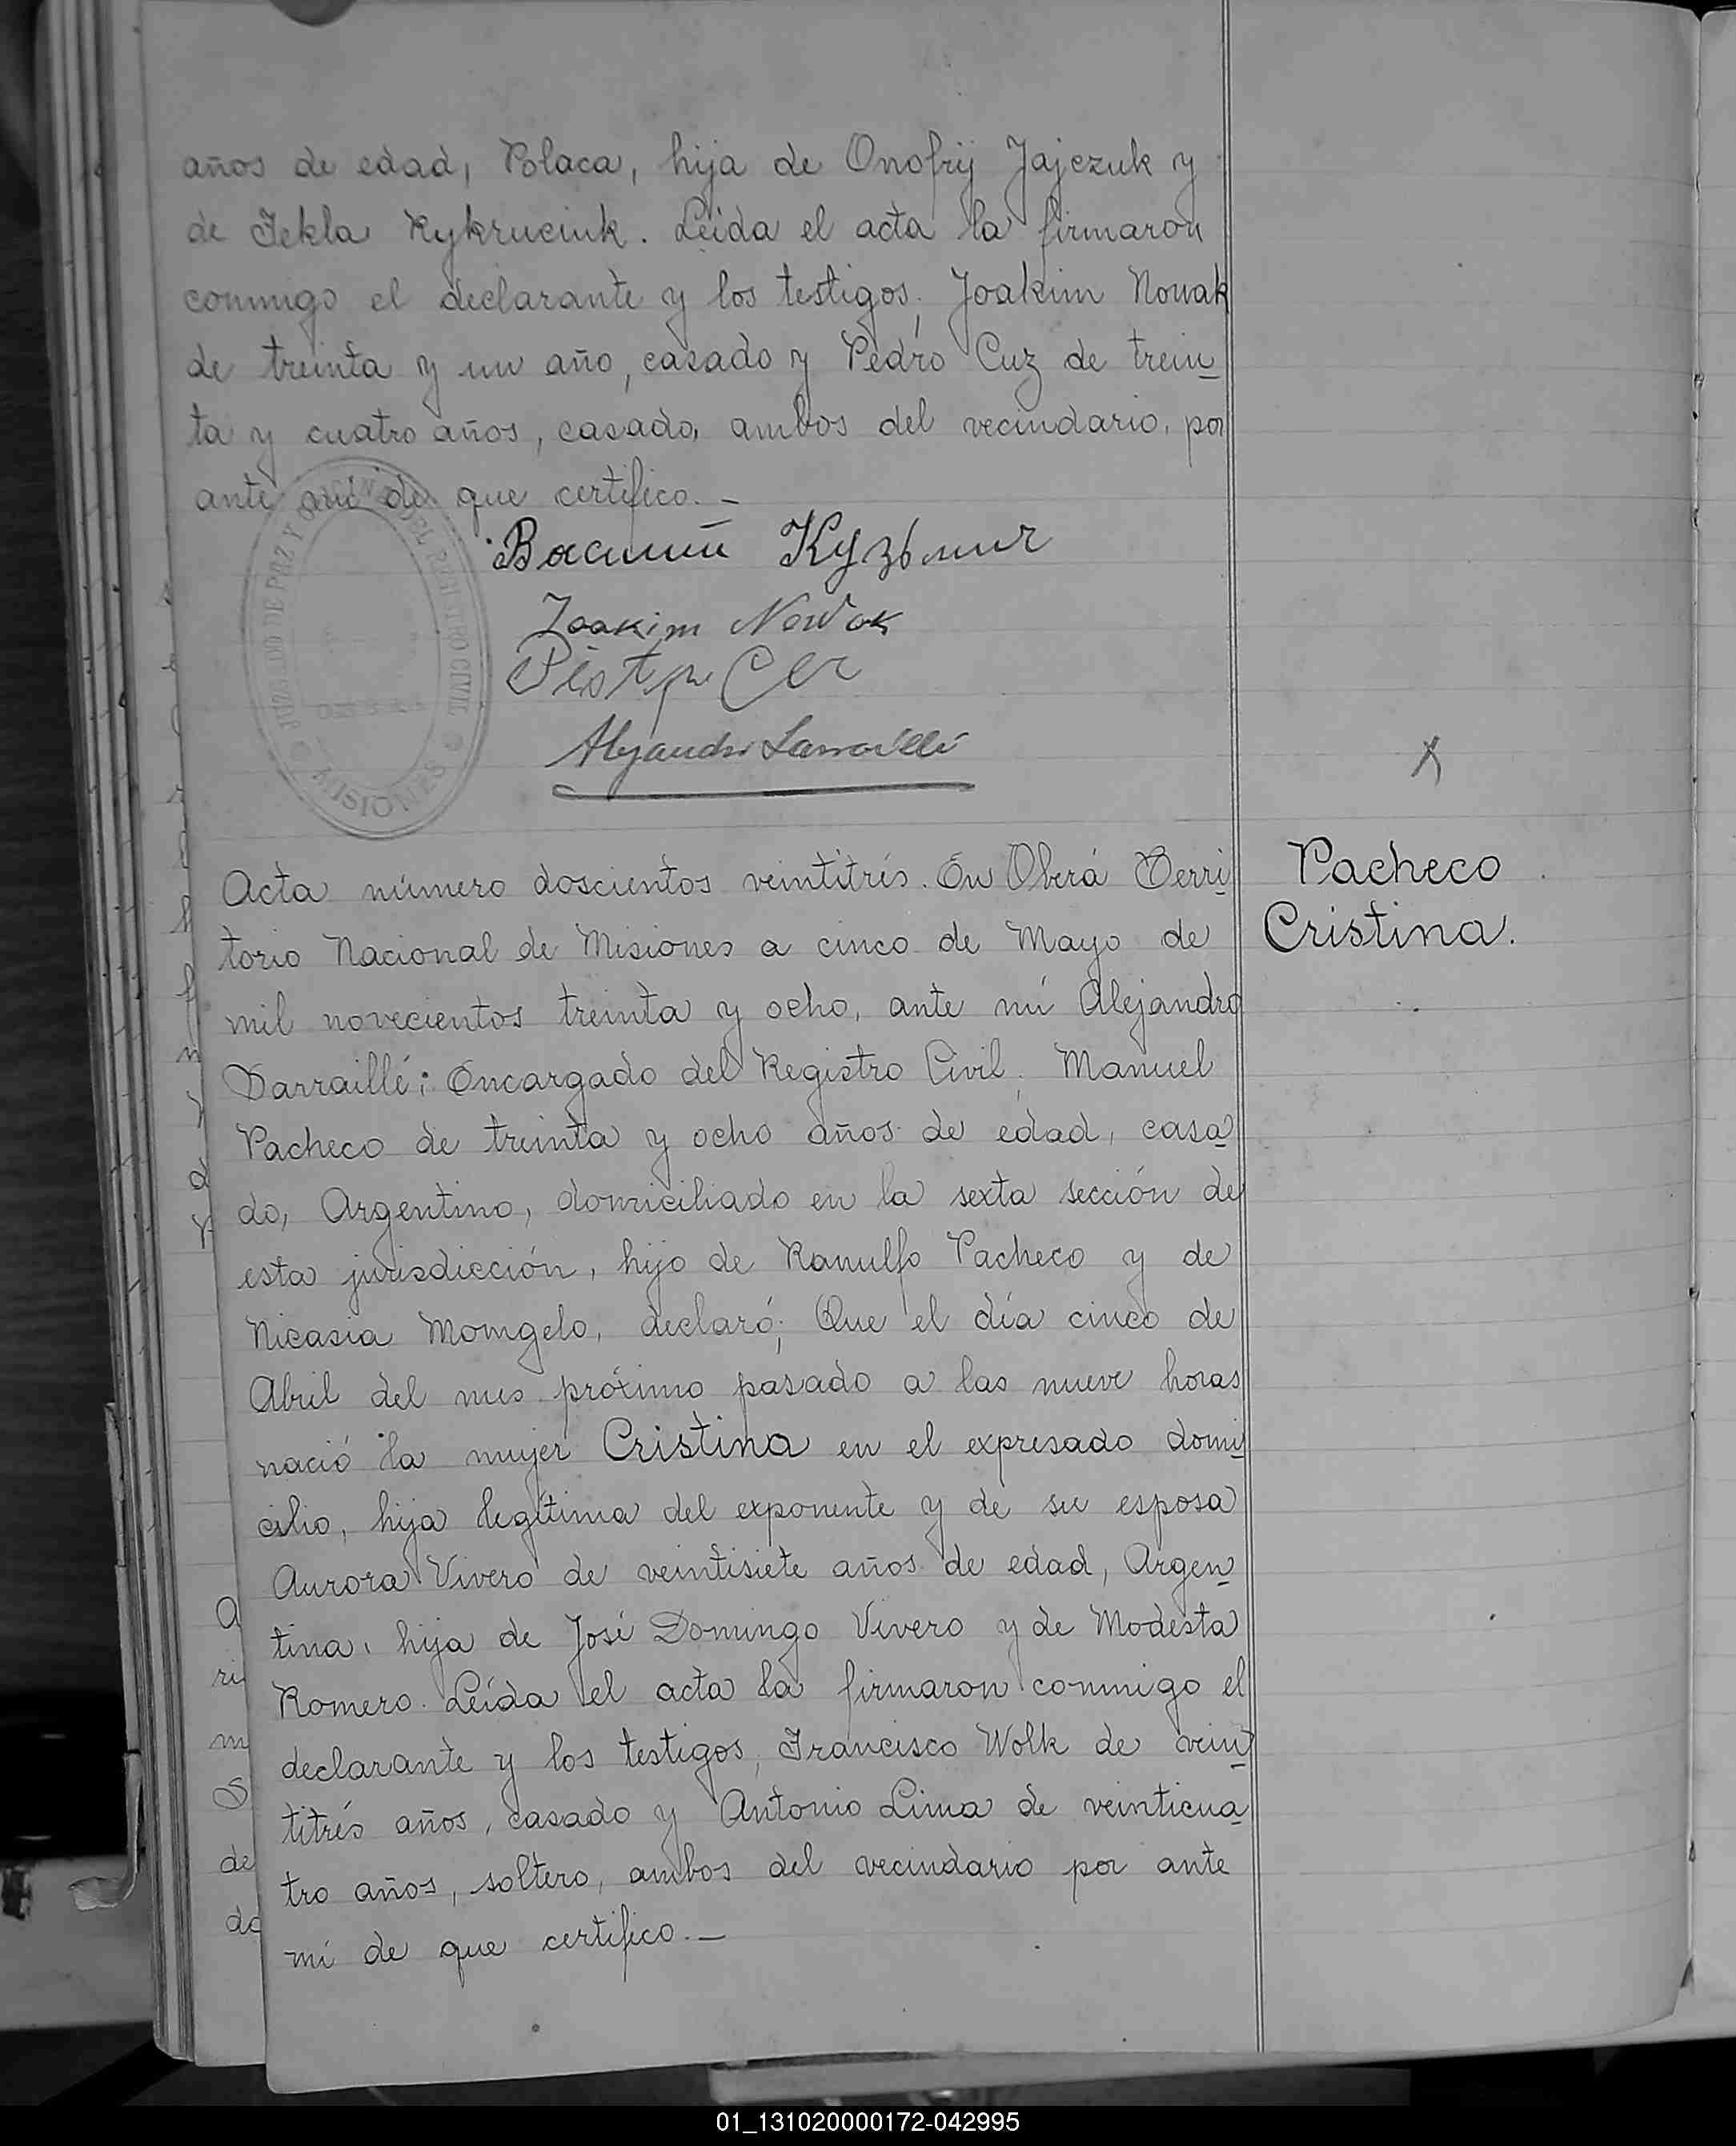 años de edad, Polaca, hija de Onofrij Jajczuk y
de Tekla Kykruciuk. Leída el acta la firmaron
conmigo el declarante y los testigos; Joakim Nowak
de treinta y un año, casado y Pedro Cuz de trein
ta y cuatro años, casado, ambos del vecindario, por
ante mí de que certifico.—
Василий Кузьмич
Joakim Nowak
Alejandro Larraillé
JUZGADO DE PAZ Y OFICINA DEL REGISTRO CIVIL
MISIONES
X
Pacheco
Cristina.
Acta número doscientos veintitrés. En Oberá Terri
torio Nacional de Misiones a cinco de Mayo de
mil novecientos treinta y ocho, ante mí Alejandro
Larraillé; Encargado del Registro Civil; Manuel
Pacheco de treinta y ocho años de edad, casa
do, Argentino, domiciliado en la sexta sección de
esta jurisdicción, hijo de Ranulfo Pacheco y de
Nicasia Momgelo, declaró; Que el día cinco de
Abril del mes próximo pasado a las nueve horas
nació la mujer Cristina en el expresado domi
cilio, hija legítima del exponente y de su esposa
Aurora Vivero de veintisiete años de edad, Argen
tina, hija de José Domingo Vivero y de Modesta
Romero. Leída el acta la firmaron conmigo el
declarante y los testigos; Francisco Wolk de vein
titrés años, casado y Antonio Lima de veinticua
tro años, soltero, ambos del vecindario por ante
mí de que certifico.—
01_131020000172-042995